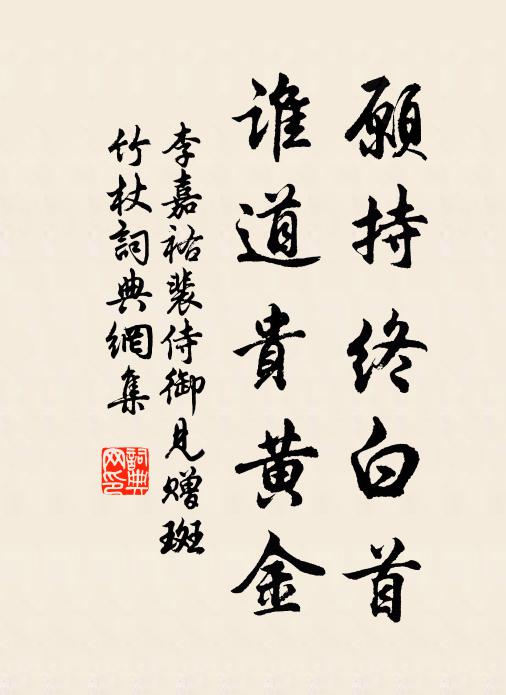 願持終白首
誰道貴黃金
李嘉祐裴侍御見贈斑
竹杖詞典網集
詞典
网印